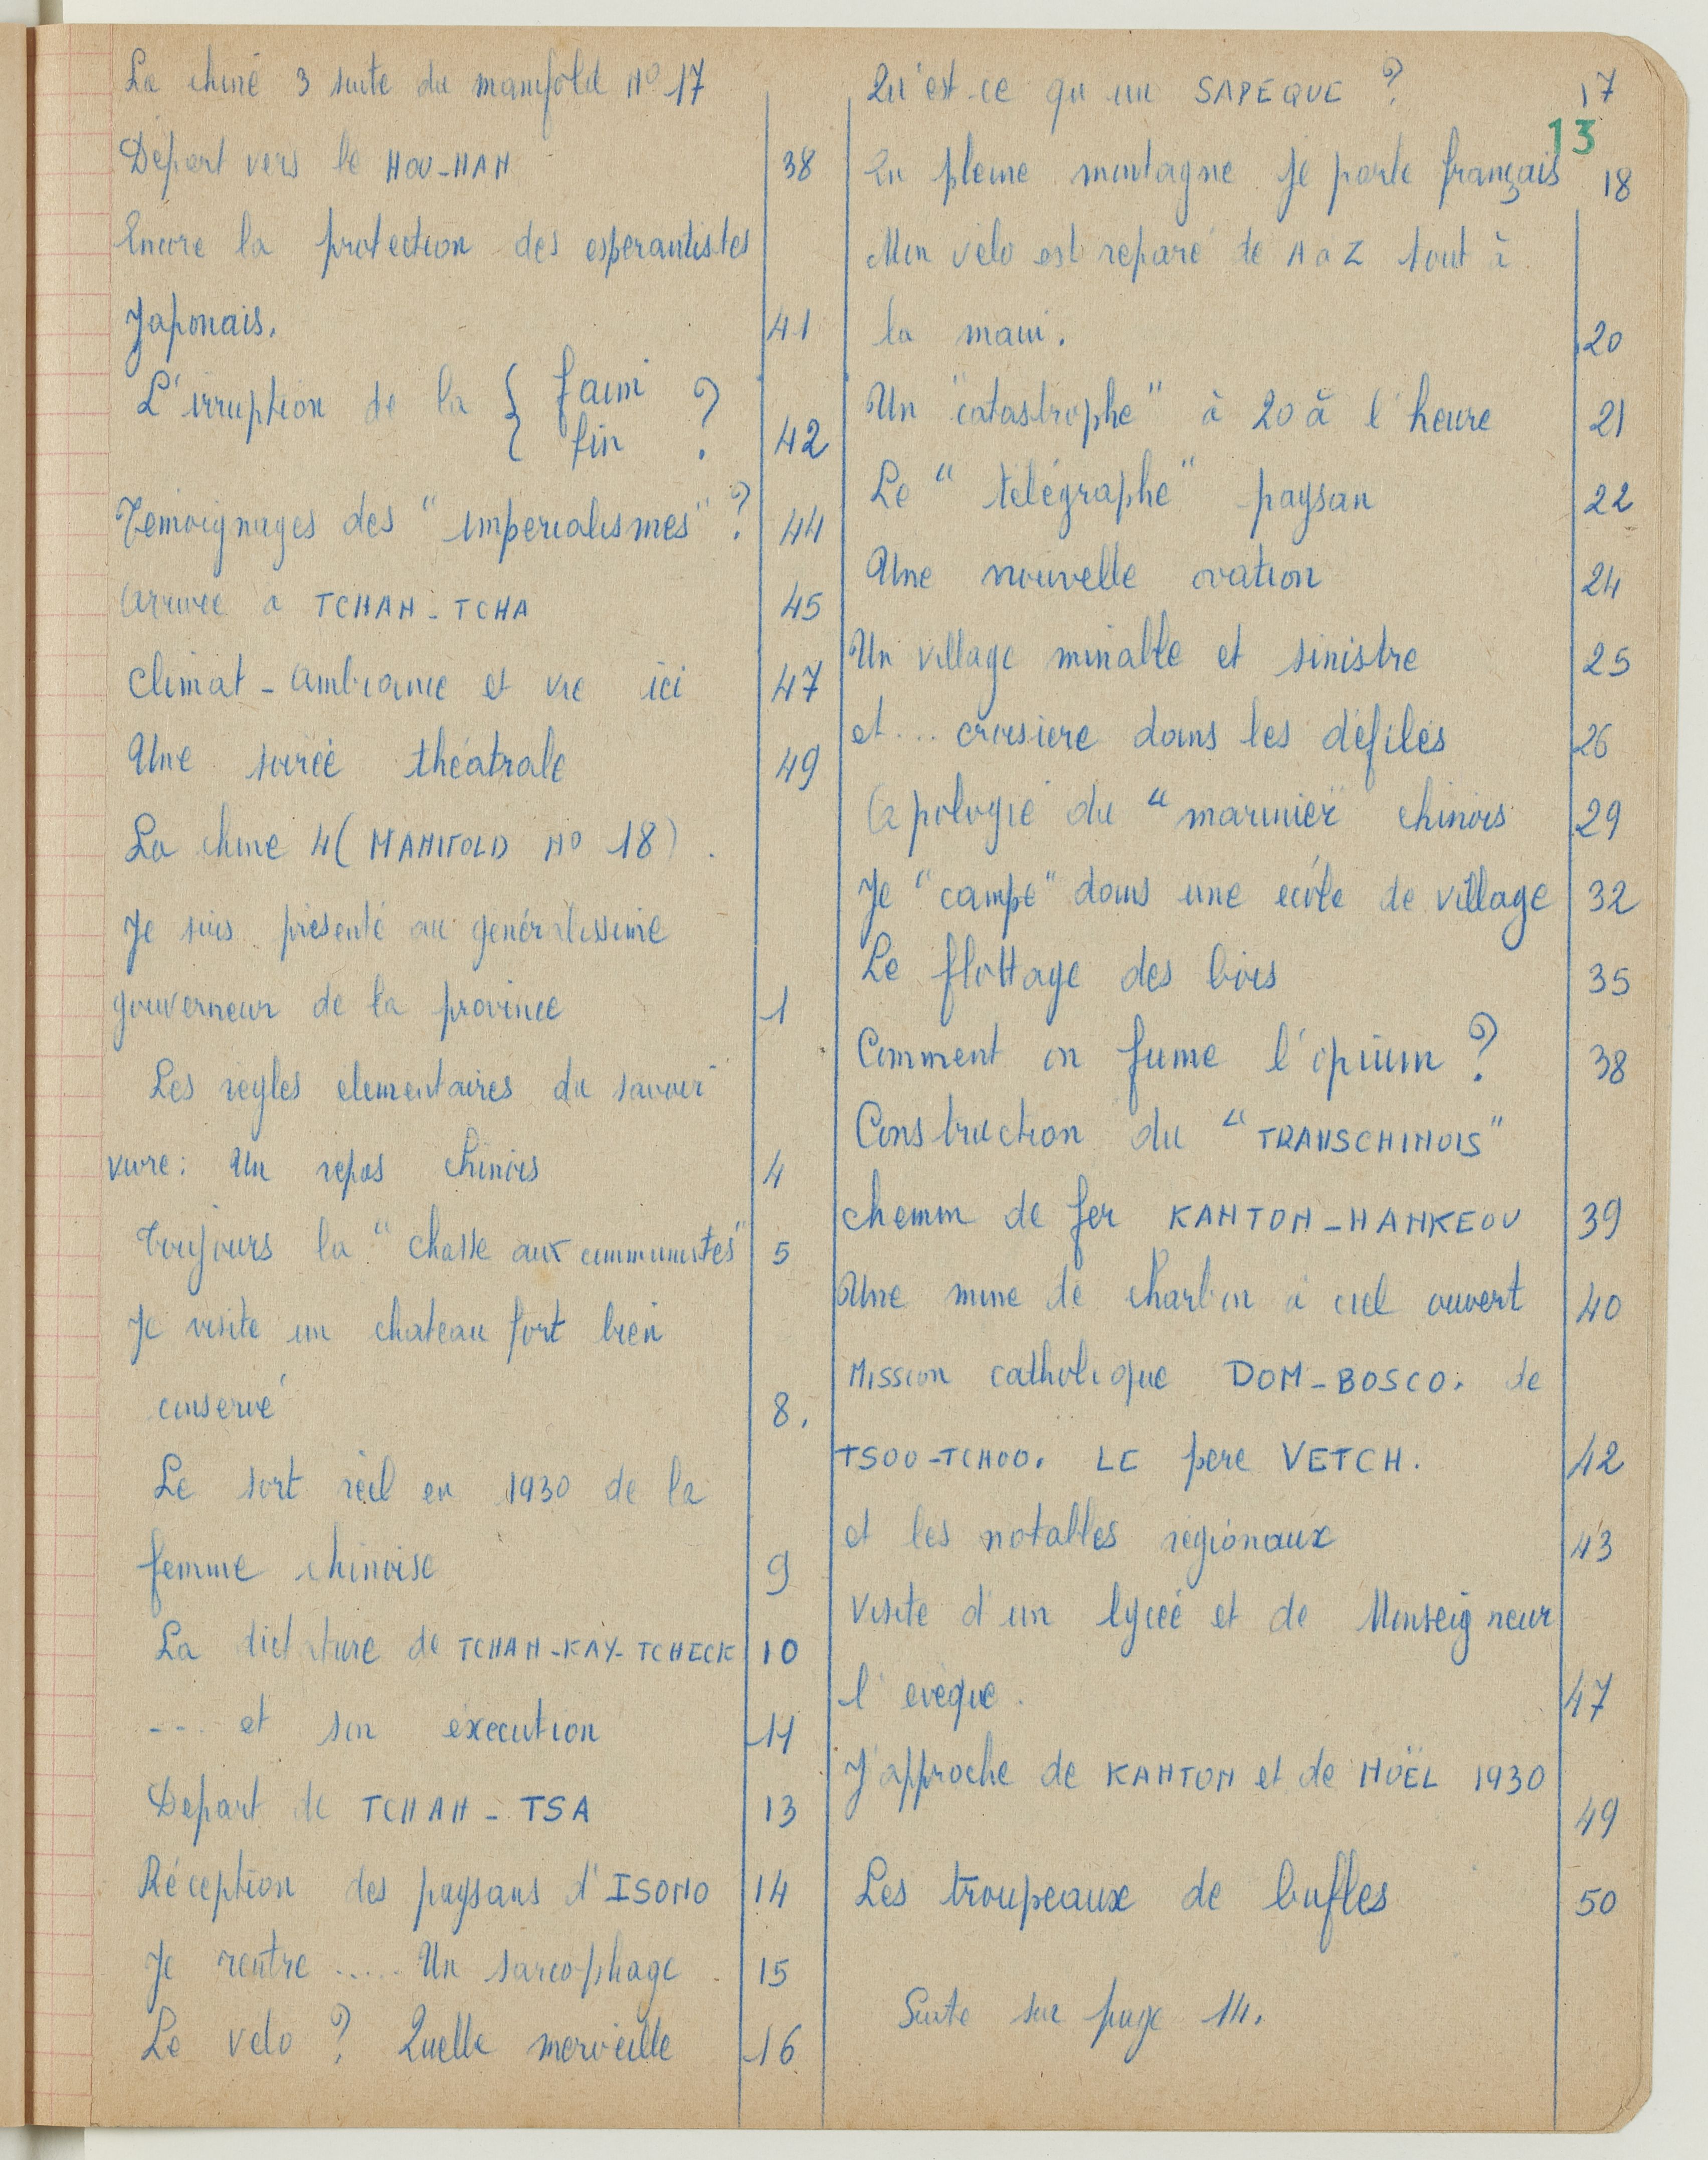 La chine 3 suite du manifold No 17
Départ vers le HOU-NAN 38
Encore la protection des espérantistes
Japonais. 41
L'irruption de la { faim ?
fin 42
Témoignages des "imperialismes" ? 44
Arrivée a TCHAN-TCHA 45
Climat - Ambiance et vie ici 47
Une soirée théatrale 49
La chine 4 (MANIFOLD No 18).
Je suis présenté au généralissime
gouverneur de la province 1
Les regles elementaires du savoir
vivre: Un repas chinois 4
Toujours la "chasse aux communistes" 5
Je visite un chateau fort bien
conservé 8.
Le sort réel en 1930 de la
femme chinoise 9
La dictature de TCHAN-KAY-TCHECK 10
--- et son éxecution 11
Départ de TCHAN-TSA 13
Réception des paysans d'ISONO 14
Je rentre ..... Un sarcophage. 15
Le velo ? Quelle merveille 16
Qu'est-ce qu un SAPEQUE ? 17
13
En pleine montagne je parle français 18
Mon vélo est réparé de A a Z tout à
la main. 20
Un "catastrophe" à 20 à l'heure 21
Le "télégraphe" paysan 22
Une nouvelle ovation 24
Un village minable et sinistre 25
et... croisiere dans les défilés 26
Apologie du "marinier" chinois 29
Je "campe" dans une école de village 32
Le flottage des bois 35
Comment on fume l'opium ? 38
Construction du "TRANSCHINOIS"
chemin de fer KANTON-HANKEOU 39
Une mine de charbon à ciel ouvert 40
Mission catholique DOM-BOSCO. de
TSOU-TCHOO. LE pere VETCH. 42
et les notables régionaux 43
Visite d'un lycée et de Monseigneur
l'evêque. 47
J'approche de KANTON et de NOËL 1930
49
Les troupeaux de bufles 50
Suite sur page 14.